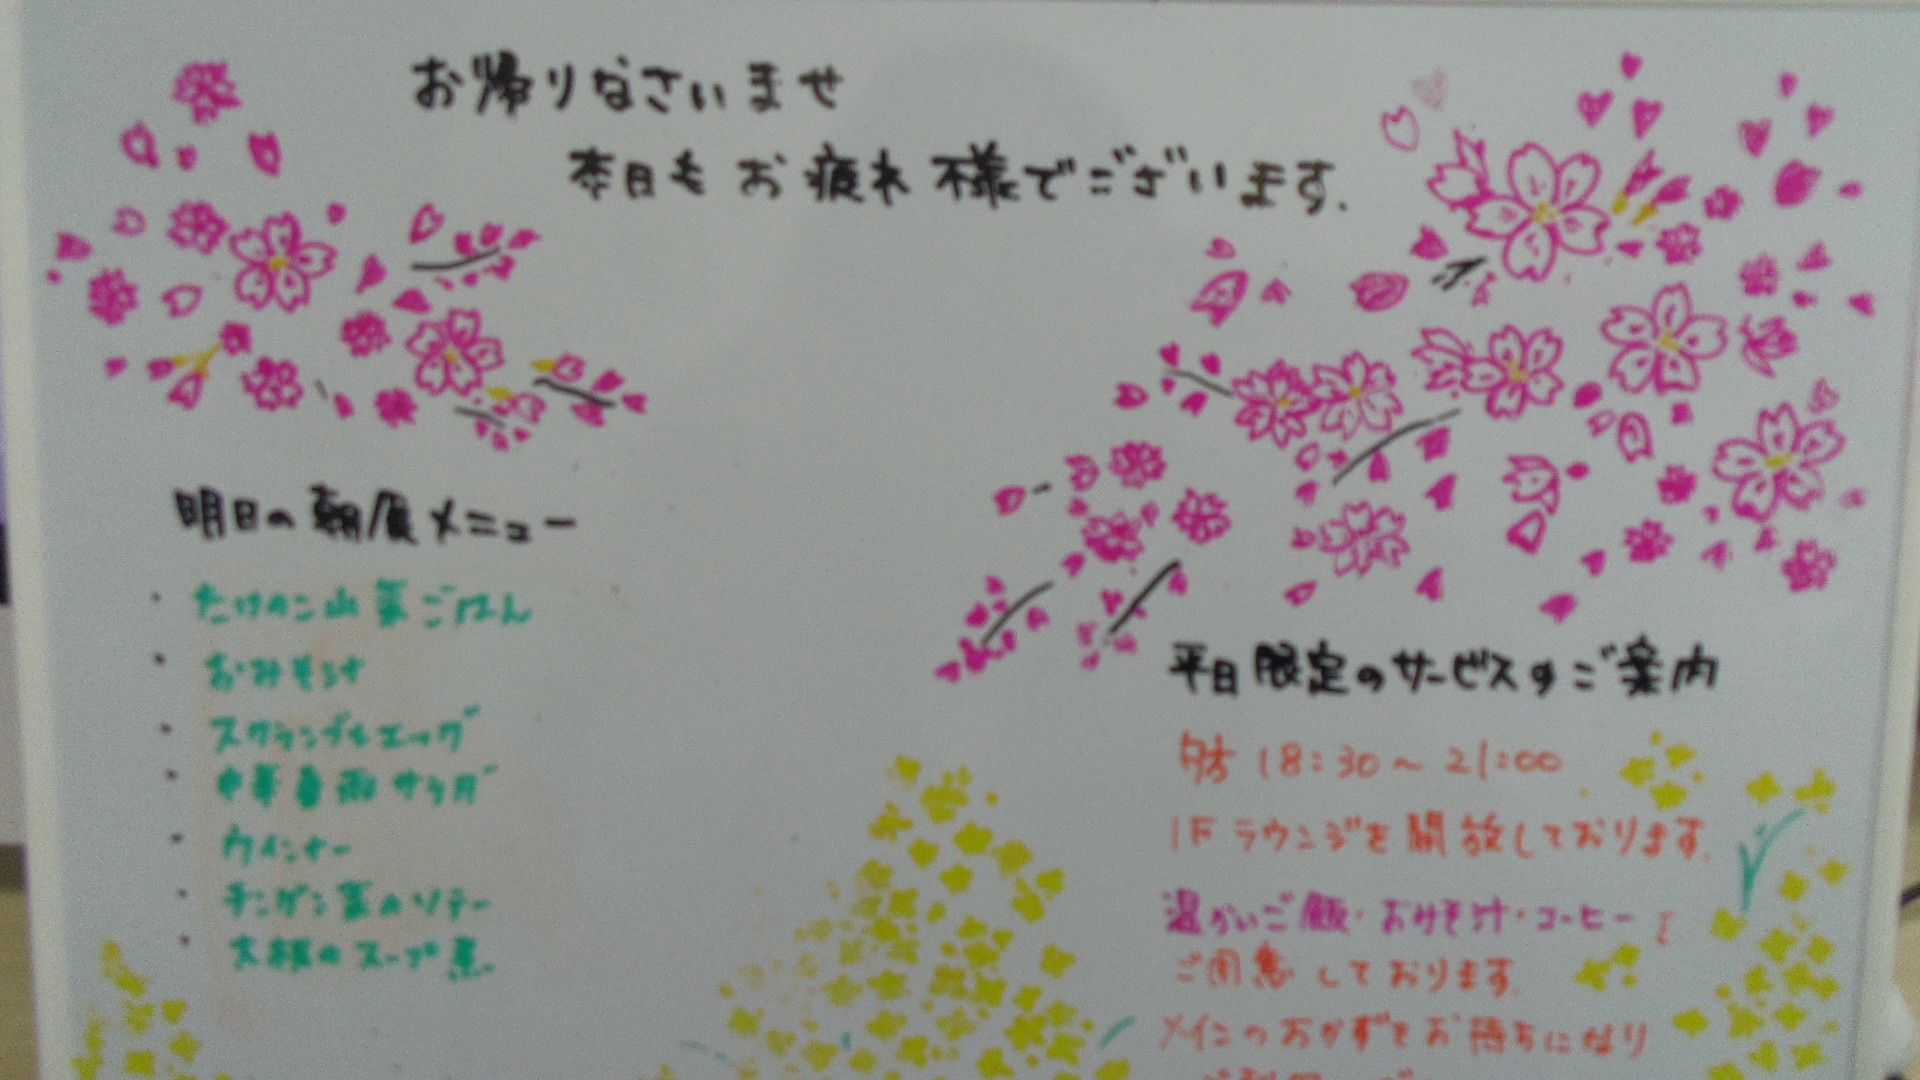 お帰りなさいませ
本日もお疲れ様でございます.
明日の朝食メニュー
・たけのこ山菜ごはん
・おみそ汁
・スクランブルエッグ
・中華春雨サラダ
・ウインナー
・チンゲン菜のソテー
・大根のスープ煮
平日限定のサービスのご案内
夕方 18:30〜21:00
1Fラウンジを開放しております.
温かいご飯・おみそ汁・コーヒーを
ご用意しております.
メインのおかずをお持ちになり